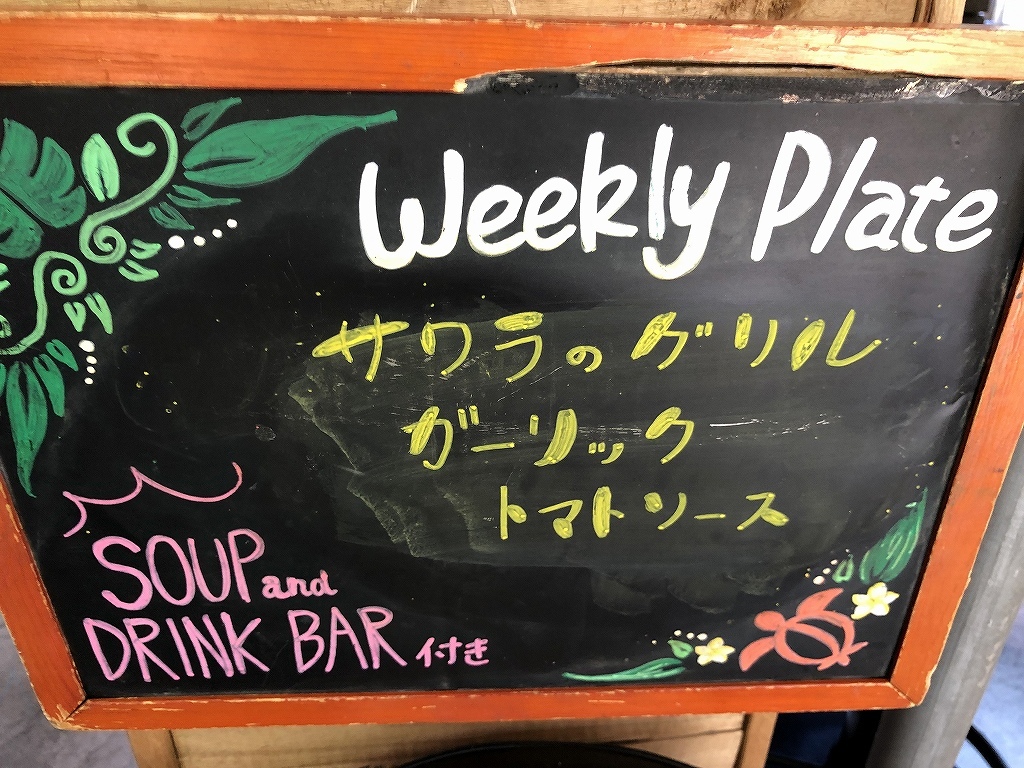 Weekly Plate
サワラのグリル
ガーリック
トマトソース
SOUP and
DRINK BAR 付き